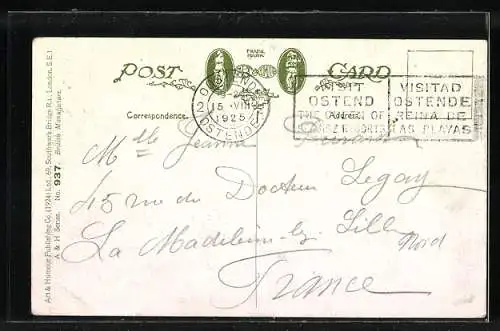 POST CARD
TRADE MARK
Correspondence.
(Address)
OSTENDE
15 VIII
1925
OSTENDE
VISIT
OSTEND
THE QUEEN OF
SEA RESORTS
VISITAD
OSTENDE
REINA DE
LAS PLAYAS
Mlle Jeanne
45 rue du Docteur Legay
La Madeleine-lez-Lille
Nord
France
Art & Humour Publishing Co. (1924) Ltd. 69, Southwark Bridge Rd., London, S.E.1
A & H Series. No. 937. British Manufacture.